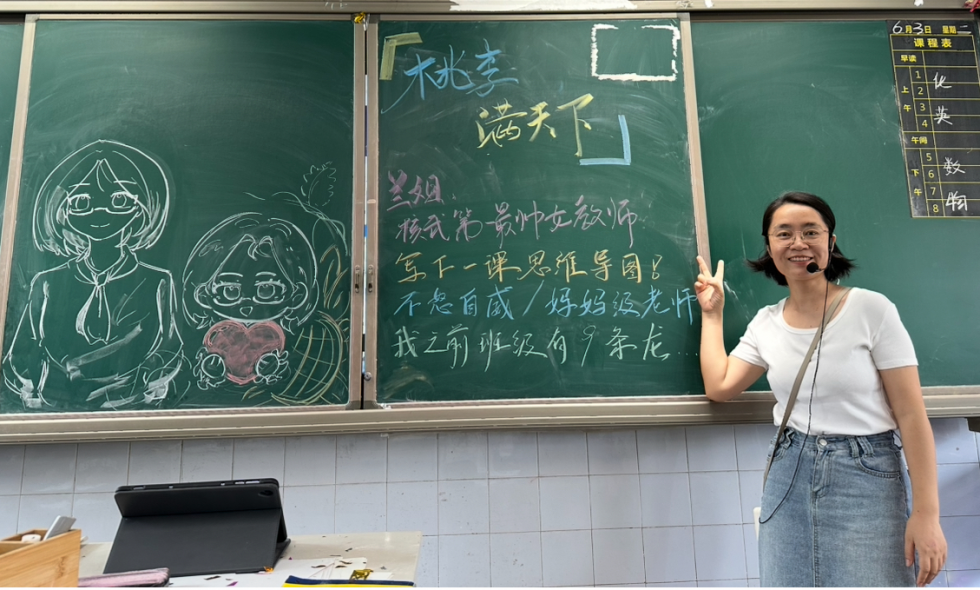 桃李
满天下
兰姐:
核武第一最帅女教师
写下一课思维导图!
不怒自威/妈妈级老师
我之前班级有9条龙...
6月3日 星期二
课程表
早读
上午
1 化
2
3 英
4
午间
下午
5 数
6
7 物
8